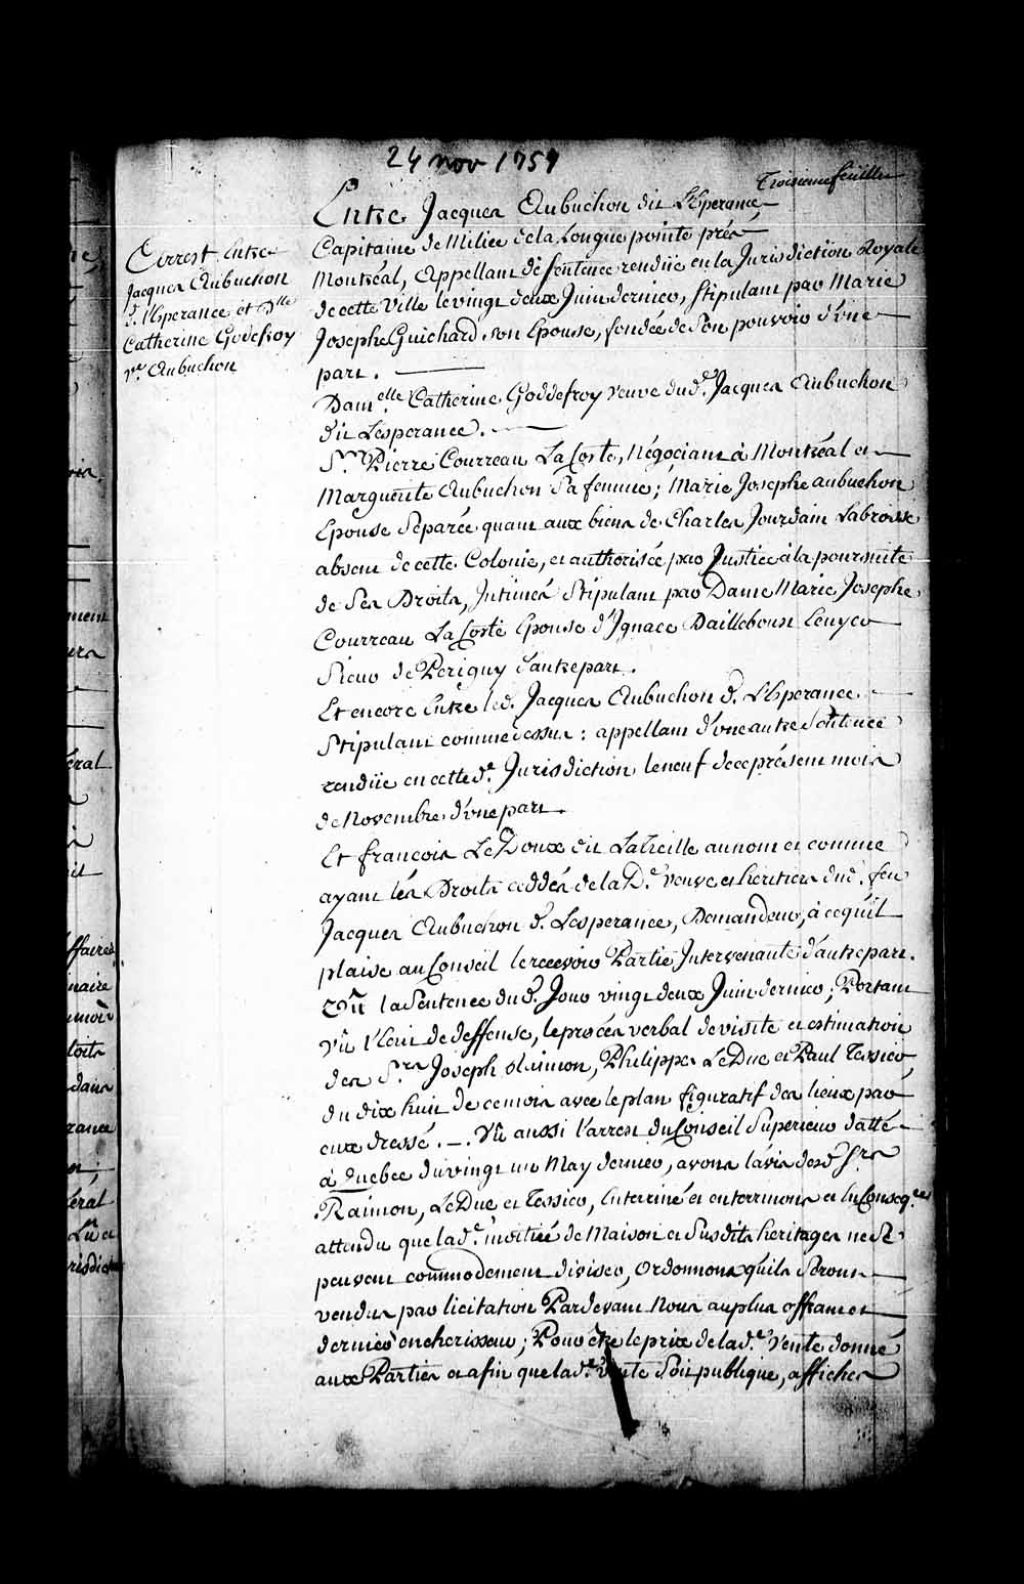 24 nov 1759
Troisieme feüillet
Arrest Entre
Jacques Aubuchon
d. L'Esperance et Dlle
Catherine Godefroy
ve. Aubuchon
Entre Jacques Aubuchon dit L'Esperance
Capitaine de Milice de la Longue pointe prés
Montréal, Appellant de sentence rendüe en la Jurisdiction Royale
de cette Ville le vingt deux Juin dernier, stipulant par Marie
Josephe Guichard son Epouse, fondée de son pouvoir d'une
part.
Damelle Catherine Goddefroy veuve dud. Jacques Aubuchon
dit Lesperance.
Sr. Pierre Courreau La Coste, Négociant à Montréal et
Marguerite Aubuchon Sa femme; Marie Josephe aubuchon
Epouse Separée quant aux biens de Charles Jourdain Labrosse
absent de cette Colonie, et authorisée par Justice à la poursuite
de Ses Droits, Intimés Stipulant par Dame Marie Josephe
Courreau La Coste Epouse d'Ignace Daillebout Ecuyer
Sieur de Perigny d'autre part.
Et encore Entre led. Jacques Aubuchon d. L'Esperance
Stipulant comme dessus: appellant d'une autre Sentence
rendüe en cette de. Jurisdiction le neuf de ce présent mois
de Novembre d'une part.
Et francois LeDoux dit LaTreille au nom et comme
ayant les Droits ceddés de la De. veuve et héritiers dud. feu
Jacques Aubuchon d. Lesperance, Demandeur, à ce qu'il
plaise au Conseil le recevoir Partie Intervenante d'autre part.
Vû la Sentence dud. Jour vingt deux Juin dernier; Portant
Vû l'Ecrit de deffense, le procés verbal de visite et estimation
des Srs Joseph Raimon, Philippes LeDuc et Paul Tessier,
du dix huit de ce mois avec le plan figuratif des lieux par
eux dressé. Vû aussi l'arrest du Conseil Superieur datté
à Quebec du vingt un May dernier, avons l'avis desd. Srs
Raimon, LeDuc et Tessier, Enteriné et enterrinons et En Conseq.ce
attendu que lad. moitiée de Maison et Susdits heritages ne Se
peuvent commodement diviser, Ordonnons qu'ils Seront
vendus par licitation Pardevant Nous au plus offrant et
dernier encherisseur; Pour être le prix de lade. Vente donné
aux Parties et afin que lade. Vente Soit publique, affiches
ffaires
naire
toits
dans
rance
eral